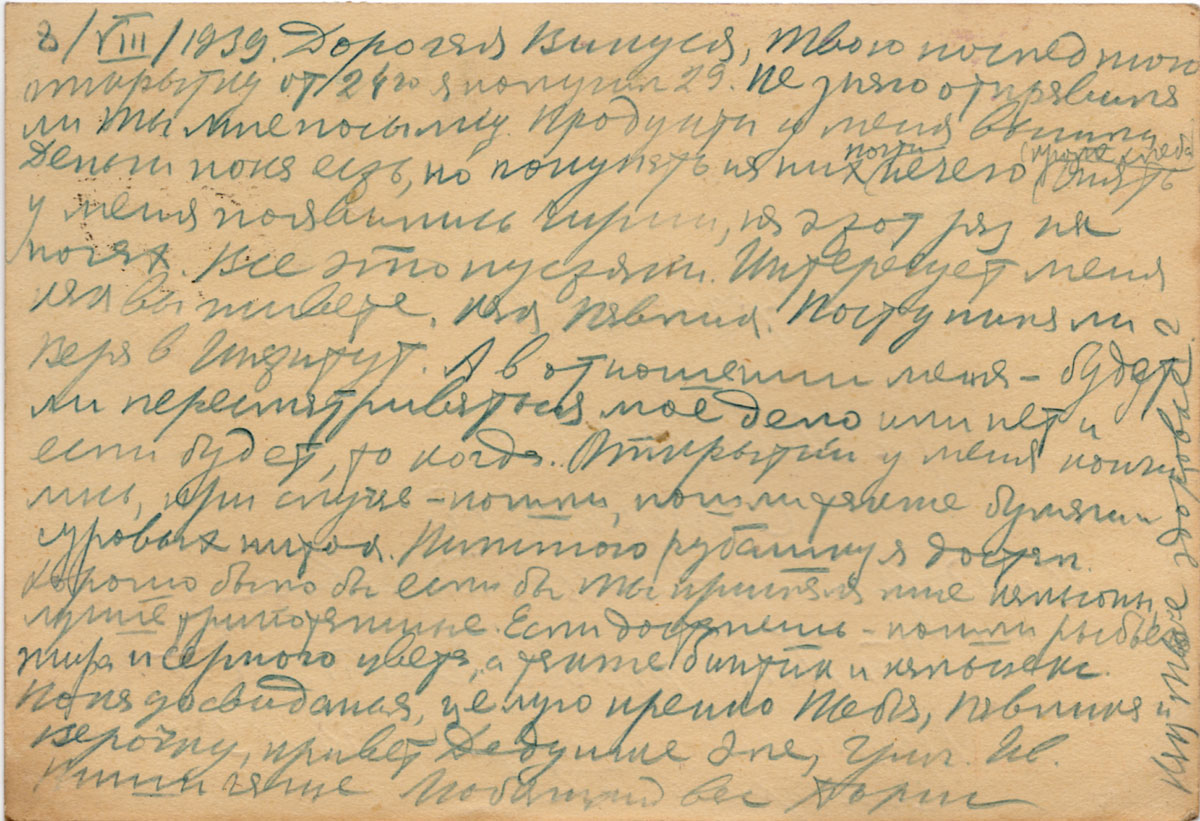 8/VIII/1939. Дорогая Випуся, твою последнюю
открытку от 24го я получил 29. Не знаю отправила
ли ты мне посылку. Продукти у меня вышли
Деньги пока есть, но покупать на них почти нечего (кроме хлеба) Опять
у меня появились чирии, на этот раз на
ногах. Все это пустяки. Интересует меня
как вы живете, как Павлик. Поступила ли
Вера в Институт. А в отношении меня – будет
ли пересматриваться мое дело или нет и
если будет, то когда. Открытки у меня кончи
лись, при случае – пошли, пошли также бумаги и
суровых ниток. Нижнюю рубашку я достал.
Хорошо было бы если бы ты прислала мне кальсоны,
лучше трикотажные. Если достанешь – пошли рыбьего
жира и серного цвета, а также бинтик и кальцекс.
Пока до свидания, целую крепко тебя, Павлика и
Верочку, привет Дедушке Эле, Григ. Ив.
пиши чаще Любящий вас Борис
Как твое здоровье?